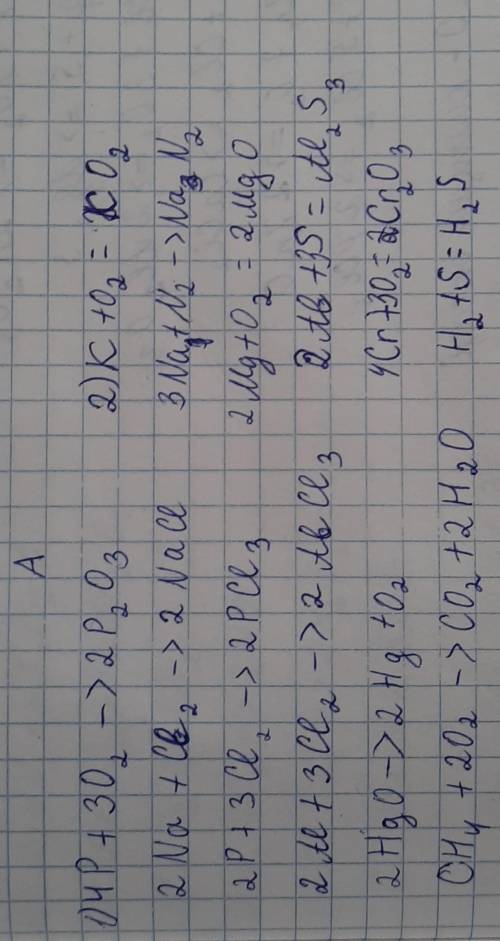 A
1) 4P + 3O2 -> 2P2O3
2 Na + Cl2 -> 2 NaCl
2P + 3Cl2 -> 2PCl3
2 Al + 3Cl2 -> 2 AlCl3
2 HgO -> 2 Hg + O2
CH4 + 2O2 -> CO2 + 2 H2O
2) K + O2 = KO2
3 Na3 + N2 -> Na3 N2
2 Mg + O2 = 2 MgO
2 Al + 3S = Al2S3
4Cr + 3O2 = 2Cr2O3
H2 + S = H2S